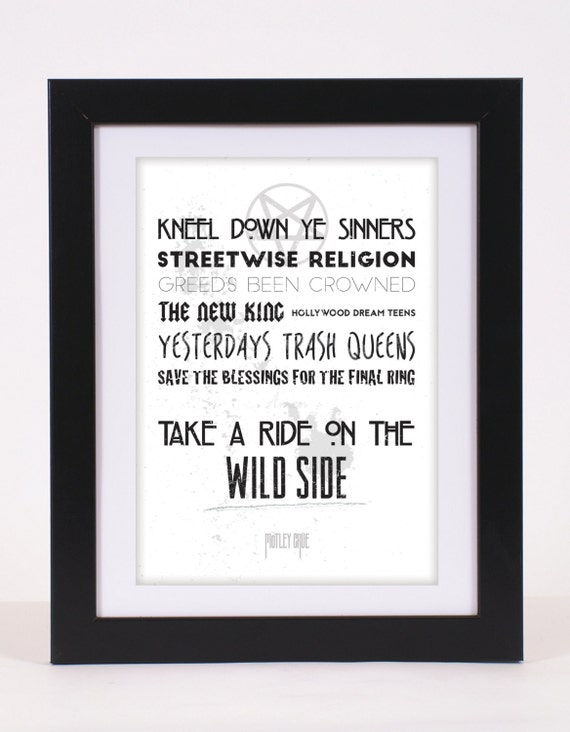 KNEEL DOWN YE SINNERS
STREETWISE RELIGION
GREED'S BEEN CROWNED
THE NEW KING HOLLYWOOD DREAM TEENS
YESTERDAYS TRASH QUEENS
SAVE THE BLESSINGS FOR THE FINAL RING
TAKE A RIDE ON THE
WILD SIDE
MöTLEY CRüE